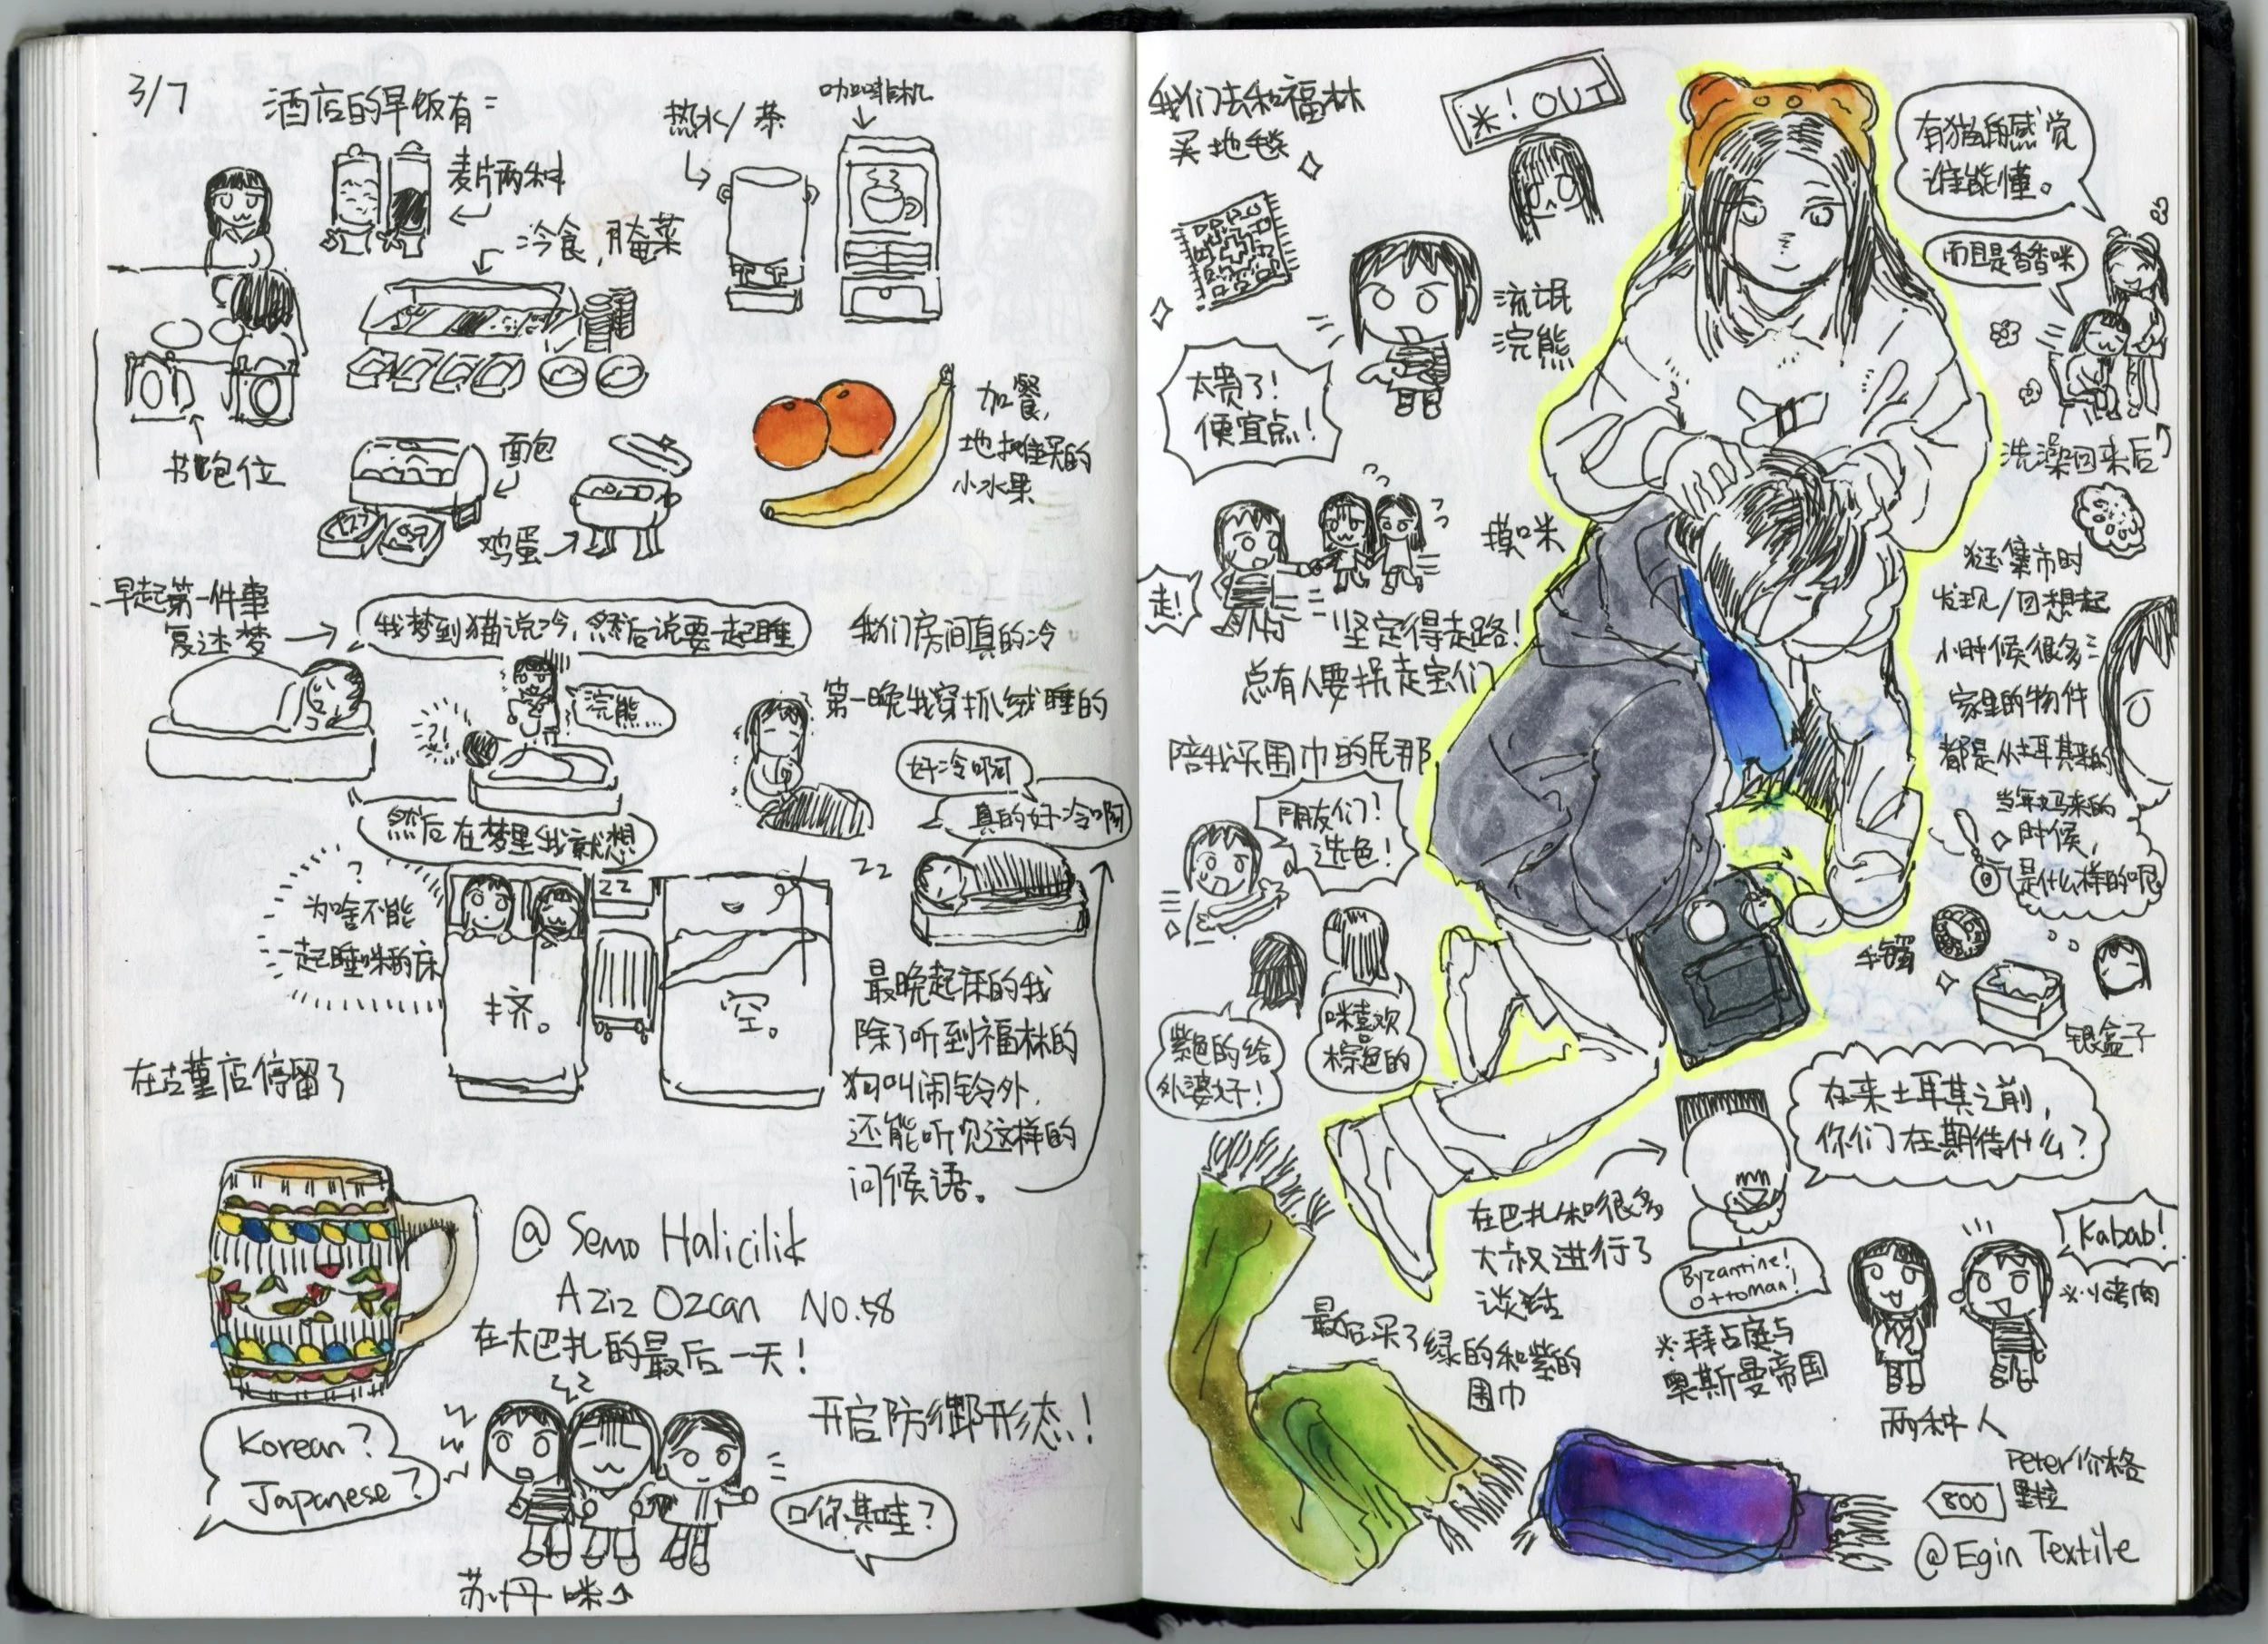 3/7
酒店的早饭有:
麦片两种
热水/茶
咖啡机
冷食,腌菜
书包位
面包
鸡蛋
加餐,
地摊买的
小水果
早起第一件事
复述梦
我梦到猫说冷,然后说要一起睡
浣熊...
?!
然后在梦里我就想
?
为啥不能
一起睡咪的床
挤。
空。
zz
我们房间真的冷
第一晚我穿抓绒睡的
好冷啊
真的好冷啊
zz
最晚起床的我
除了听到福林的
狗叫闹铃外,
还能听见这样的
问候语。
在古董店停留了
@ Semo Halicilik
Aziz Ozcan No.58
在大巴扎的最后一天!
开启防御形态!
Korean?
Japanese?
口你其哇?
苏丹咪
我们去和福林
买地毯
*! OUT
流氓
浣熊
太贵了!
便宜点!
走!
摸咪
坚定得走路!
总有人要拐走宝们
陪我买围巾的尼那
朋友们!
选色!
紫色的给
外婆好!
咪喜欢
棕色的
有猫的感觉
谁能懂。
而且是香香咪
洗澡回来后
逛集市时
发现/回想起
小时候很多
家里的物件
都是从土耳其来的
当年妈来的
时候,
是什么样的呢
银盒子
在来土耳其之前,
你们在期待什么?
在巴扎和很多
大叔进行了
谈话
Byzantine!
Ottoman!
*拜占庭与
奥斯曼帝国
Kabab!
*烤肉
两种人
最后买了绿的和紫的
围巾
Peter价格
里拉
800
@Egin Textile